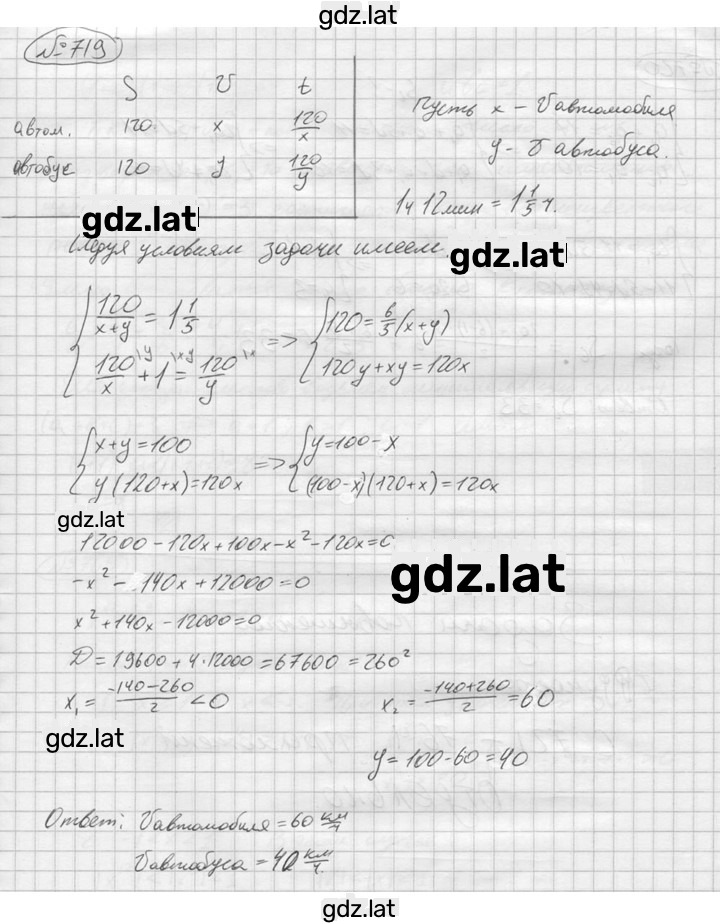 gdz.lat
№ 719
S V t
автом. 120 x 120/x
автобус 120 y 120/y
Пусть x – V автомобиля
y – V автобуса.
1ч 12мин = 1 1/5 ч.
gdz.lat
Следуя условиям задачи имеем.
gdz.lat
{ 120/(x+y) = 1 1/5 => { 120 = 6/5 (x+y)
{ 120/x |y + 1 |xy = 120/y |x { 120y + xy = 120x
{ x+y=100 => { y=100-x
{ y(120+x)=120x { (100-x)(120+x)=120x
gdz.lat
12000 - 120x + 100x - x² - 120x = 0
gdz.lat
-x² - 140x + 12000 = 0
x² + 140x - 12000 = 0
D = 19600 + 4·12000 = 67600 = 260²
x₁ = (-140-260)/2 < 0 x₂ = (-140+260)/2 = 60
gdz.lat
y = 100-60 = 40
Ответ: V автомобиля = 60 км/ч
V автобуса = 40 км/ч.
gdz.lat